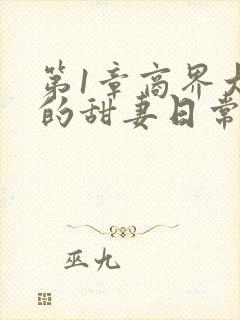 第1章商界大
的甜妻日常
巫九